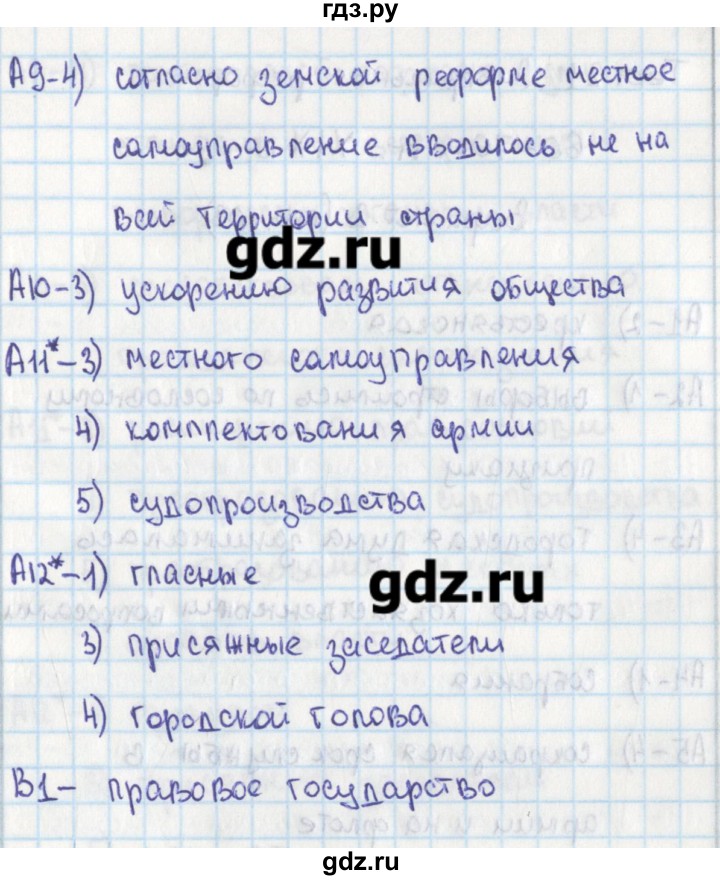 гдз.ру
А9-4) согласно земской реформе местное
самоуправление вводилось не на
всей территории страны
gdz.ru
А10-3) ускорению развития общества
А11*-3) местного самоуправления
4) комплектования армии
5) судопроизводства
А12*-1) гласные
gdz.ru
3) присяжные заседатели
4) городской голова
В1- правовое государство
gdz.ru